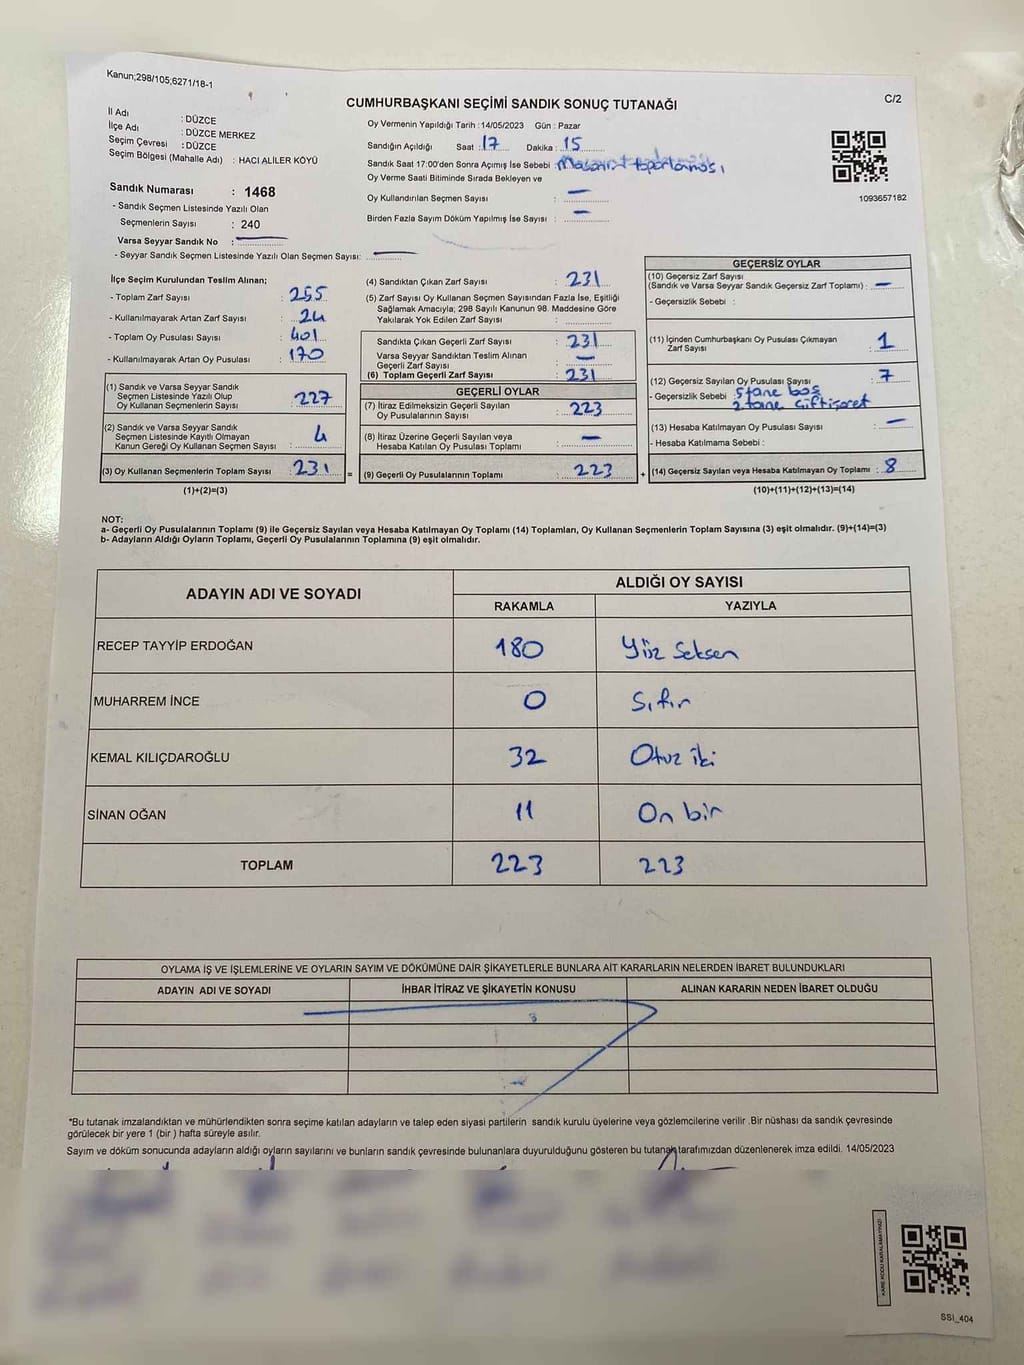 Kanun;298/105;6271/18-1
C/2
CUMHURBAŞKANI SEÇİMİ SANDIK SONUÇ TUTANAĞI
İl Adı : DÜZCE
İlçe Adı : DÜZCE MERKEZ
Seçim Çevresi : DÜZCE
Seçim Bölgesi (Mahalle Adı) : HACI ALİLER KÖYÜ
Sandık Numarası : 1468
- Sandık Seçmen Listesinde Yazılı Olan
Seçmenlerin Sayısı : 240
Varsa Seyyar Sandık No :
- Seyyar Sandık Seçmen Listesinde Yazılı Olan Seçmen Sayısı:
Oy Vermenin Yapıldığı Tarih :14/05/2023 Gün : Pazar
Sandığın Açıldığı Saat : 17 Dakika : 15
Sandık Saat 17:00'den Sonra Açımış İse Sebebi :
Oy Verme Saati Bitiminde Sırada Bekleyen ve
Oy Kullandırılan Seçmen Sayısı : —
Birden Fazla Sayım Döküm Yapılmış İse Sayısı : —
1093657182
İlçe Seçim Kurulundan Teslim Alınan;
- Toplam Zarf Sayısı : 255
- Kullanılmayarak Artan Zarf Sayısı : 24
- Toplam Oy Pusulası Sayısı : 401
- Kullanılmayarak Artan Oy Pusulası : 170
(1) Sandık ve Varsa Seyyar Sandık
Seçmen Listesinde Yazılı Olup
Oy Kullanan Seçmenlerin Sayısı : 227
(2) Sandık ve Varsa Seyyar Sandık
Seçmen Listesinde Kayıtlı Olmayan
Kanun Gereği Oy Kullanan Seçmen Sayısı : 4
(3) Oy Kullanan Seçmenlerin Toplam Sayısı : 231 =
(1)+(2)=(3)
(4) Sandıktan Çıkan Zarf Sayısı : 231
(5) Zarf Sayısı Oy Kullanan Seçmen Sayısından Fazla İse, Eşitliği
Sağlamak Amacıyla; 298 Sayılı Kanunun 98. Maddesine Göre
Yakılarak Yok Edilen Zarf Sayısı :
Sandıkta Çıkan Geçerli Zarf Sayısı : 231
Varsa Seyyar Sandıktan Teslim Alınan
Geçerli Zarf Sayısı : —
(6) Toplam Geçerli Zarf Sayısı : 231
GEÇERLİ OYLAR
(7) İtiraz Edilmeksizin Geçerli Sayılan
Oy Pusulasının Sayısı : 223
(8) İtiraz Üzerine Geçerli Sayılan veya
Hesaba Katılan Oy Pusulası Toplamı : —
(9) Geçerli Oy Pusulalarının Toplamı : 223 +
GEÇERSİZ OYLAR
(10) Geçersiz Zarf Sayısı
(Sandık ve Varsa Seyyar Sandık Geçersiz Zarf Toplamı) : —
- Geçersizlik Sebebi :
(11) İçinden Cumhurbaşkanı Oy Pusulası Çıkmayan
Zarf Sayısı : 1
(12) Geçersiz Sayılan Oy Pusulası Sayısı : 7
- Geçersizlik Sebebi 5 tane boş
2 tane çift işaret
(13) Hesaba Katılmayan Oy Pusulası Sayısı : —
- Hesaba Katılmama Sebebi :
(14) Geçersiz Sayılan veya Hesaba Katılmayan Oy Toplamı : 8
(10)+(11)+(12)+(13)=(14)
NOT:
a- Geçerli Oy Pusulalarının Toplamı (9) ile Geçersiz Sayılan veya Hesaba Katılmayan Oy Toplamı (14) Toplamları, Oy Kullanan Seçmenlerin Toplam Sayısına (3) eşit olmalıdır. (9)+(14)=(3)
b- Adayların Aldığı Oyların Toplamı, Geçerli Oy Pusulalarının Toplamına (9) eşit olmalıdır.
ADAYIN ADI VE SOYADI ALDIĞI OY SAYISI
RAKAMLA YAZIYLA
RECEP TAYYİP ERDOĞAN 180 Yüz Seksen
MUHARREM İNCE 0 Sıfır
KEMAL KILIÇDAROĞLU 32 Otuz iki
SİNAN OĞAN 11 On bir
TOPLAM 223 223
OYLAMA İŞ VE İŞLEMLERİNE VE OYLARIN SAYIM VE DÖKÜMÜNE DAİR ŞİKAYETLERLE BUNLARA AİT KARARLARIN NELERDEN İBARET BULUNDUKLARI
ADAYIN ADI VE SOYADI İHBAR İTİRAZ VE ŞİKAYETİN KONUSU ALINAN KARARIN NEDEN İBARET OLDUĞU
*Bu tutanak imzalandıktan ve mühürlendikten sonra seçime katılan adayların ve talep eden siyasi partilerin sandık kurulu üyelerine veya gözlemcilerine verilir .Bir nüshası da sandık çevresinde
görülecek bir yere 1 (bir ) hafta süreyle asılır.
Sayım ve döküm sonucunda adayların aldığı oyların sayılarını ve bunların sandık çevresinde bulunanlara duyurulduğunu gösteren bu tutanak tarafımızdan düzenlenerek imza edildi. 14/05/2023
KARE KODU KARALAMAYINIZ!
SSI_404